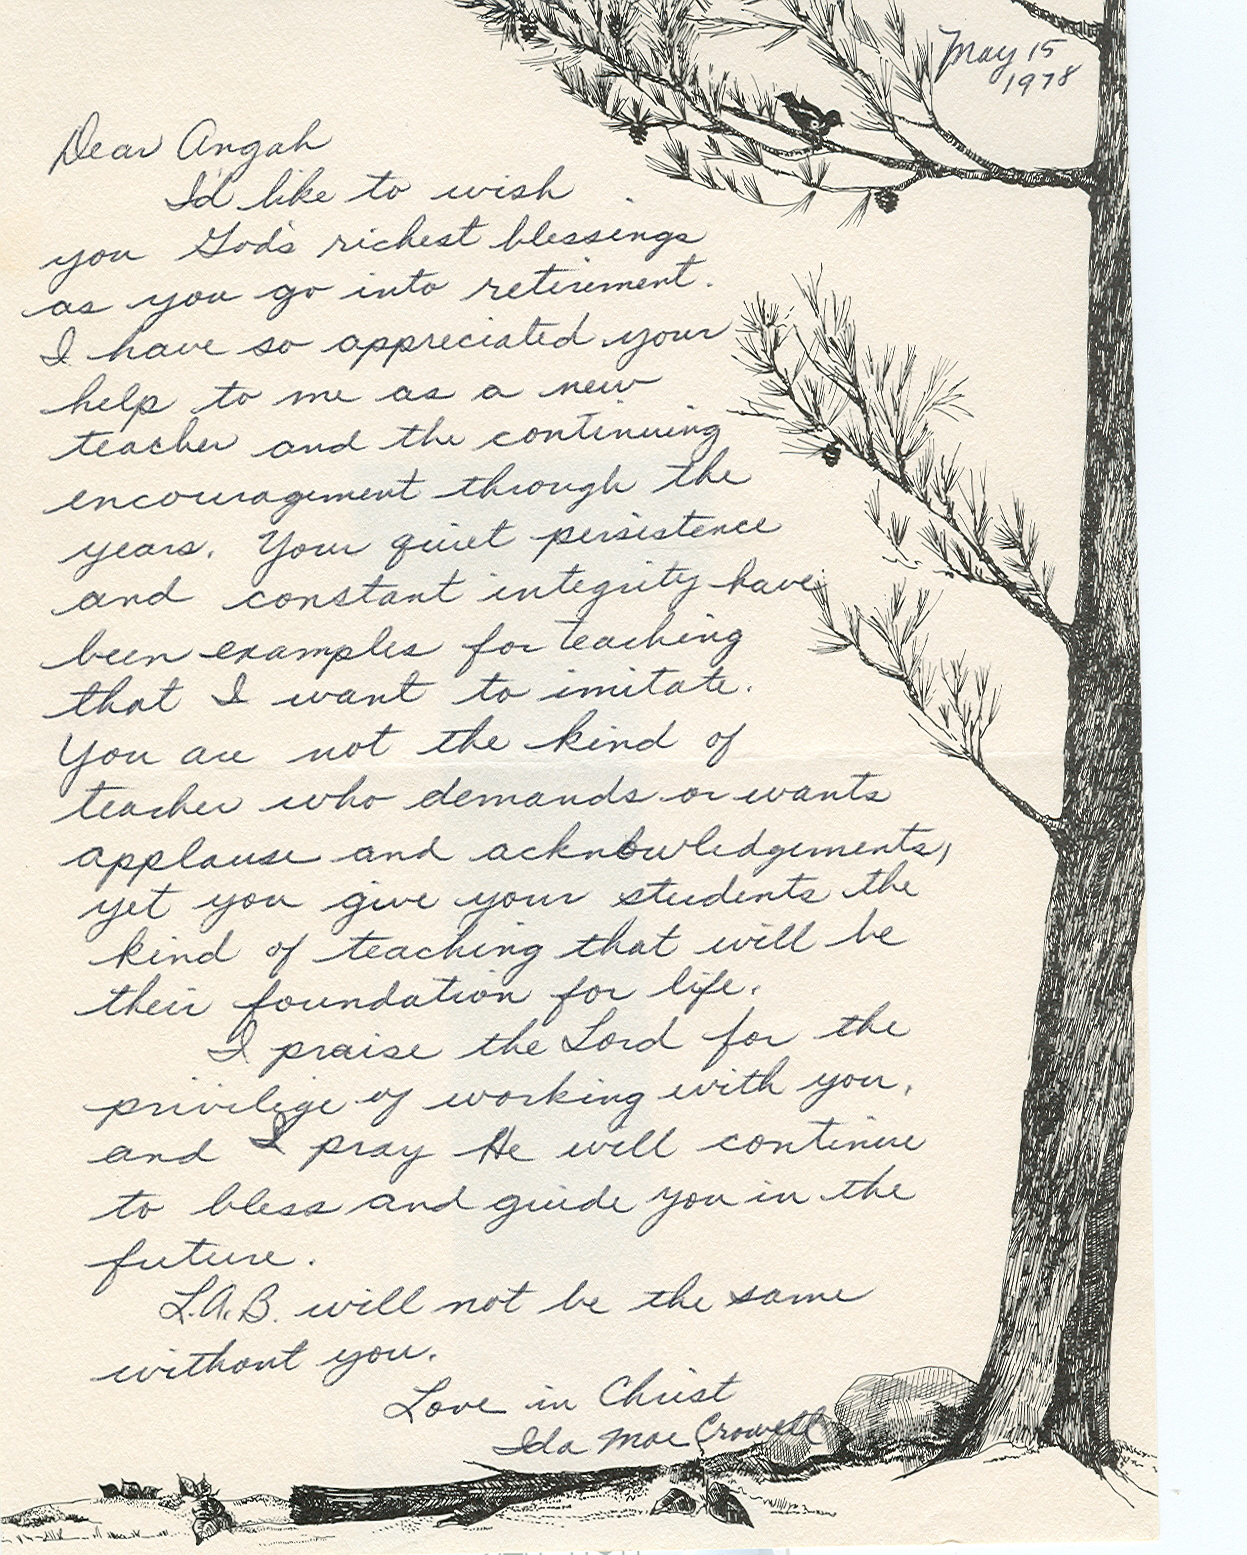 May 15
1978
Dear Angah
I'd like to wish
you God's richest blessings
as you go into retirement.
I have so appreciated your
help to me as a new
teacher and the continuing
encouragement through the
years. Your quiet persistence
and constant integrity have
been examples for teaching
that I want to imitate.
You are not the kind of
teacher who demands or wants
applause and acknowledgements,
yet you give your students the
kind of teaching that will be
their foundation for life.
I praise the Lord for the
privilige of working with you,
and I pray He will continue
to bless and guide you in the
future.
L.A.B. will not be the same
without you.
Love in Christ
Ida Mae Crowell